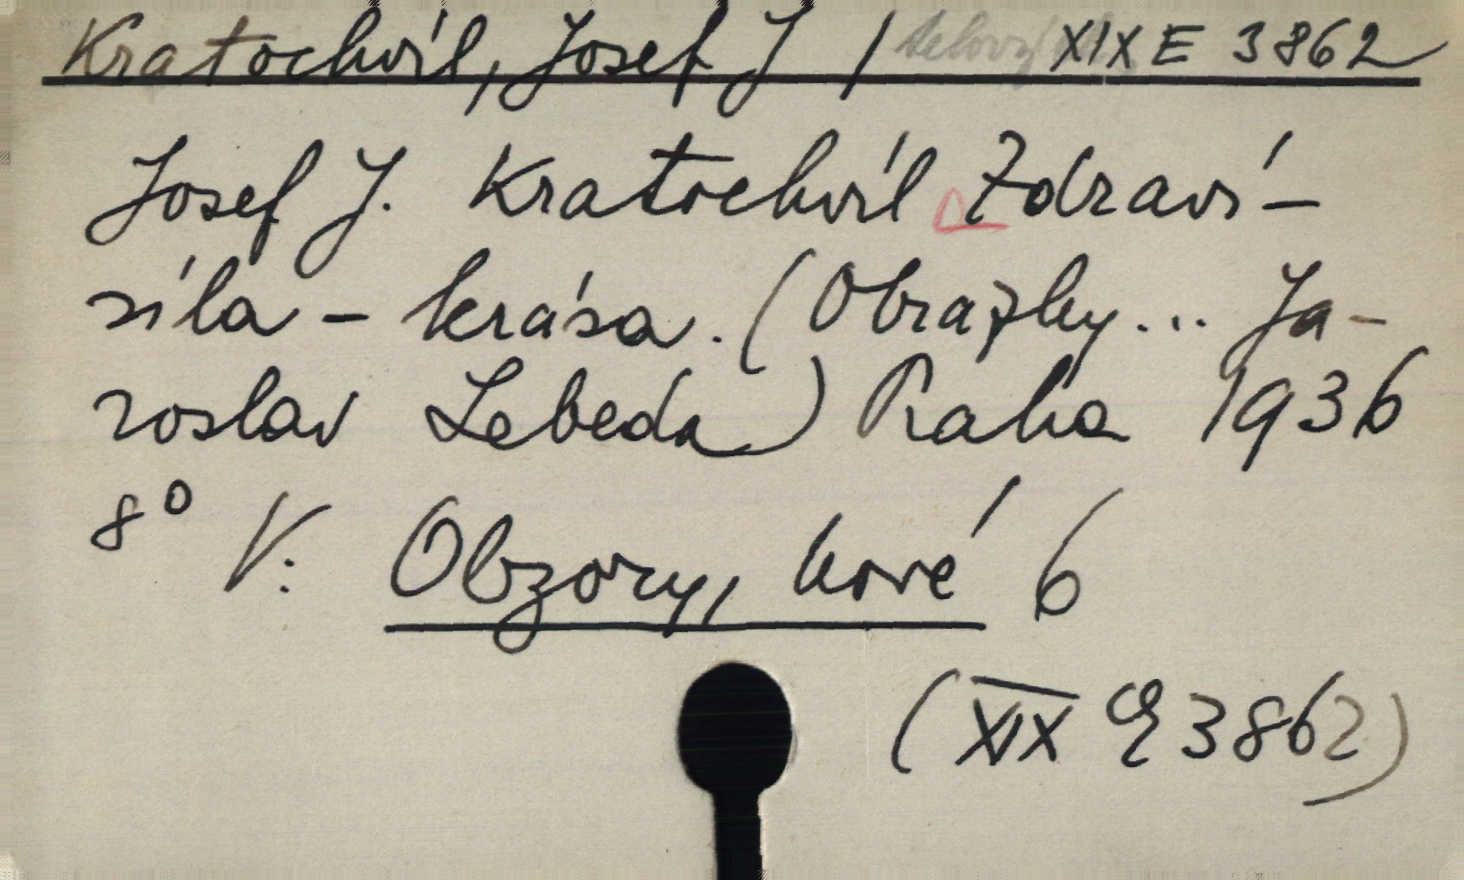 Kratochvíl, Josef J / XIX E 3862
Josef J. Kratochvíl Zdraví-
síla - krása. (Obrázky... Ja-
roslav Lebeda) Praha 1936
8° V: Obzory, nové 6
(XIX E 3862)